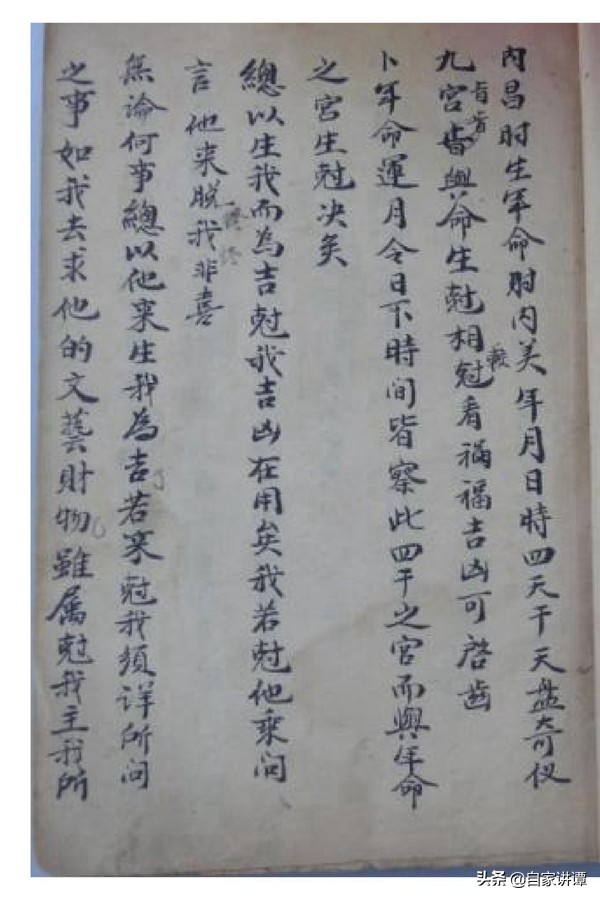 內昌时生年命时内美年月日時四天干天盘奇仪
九宮皆與命生尅相尅看禍福吉凶可啓齒
卜年命運月令日下時间皆察此四干之宮而與年命
之宮生尅决矣
總以生我而為吉尅我吉凶在用矣我若尅他乘问
言他来脱我非喜
無論何事總以他来生我為吉若来尅我须详所问
之事如我去求他的文藝財物雖属尅我主我所
头条 @自家讲谭